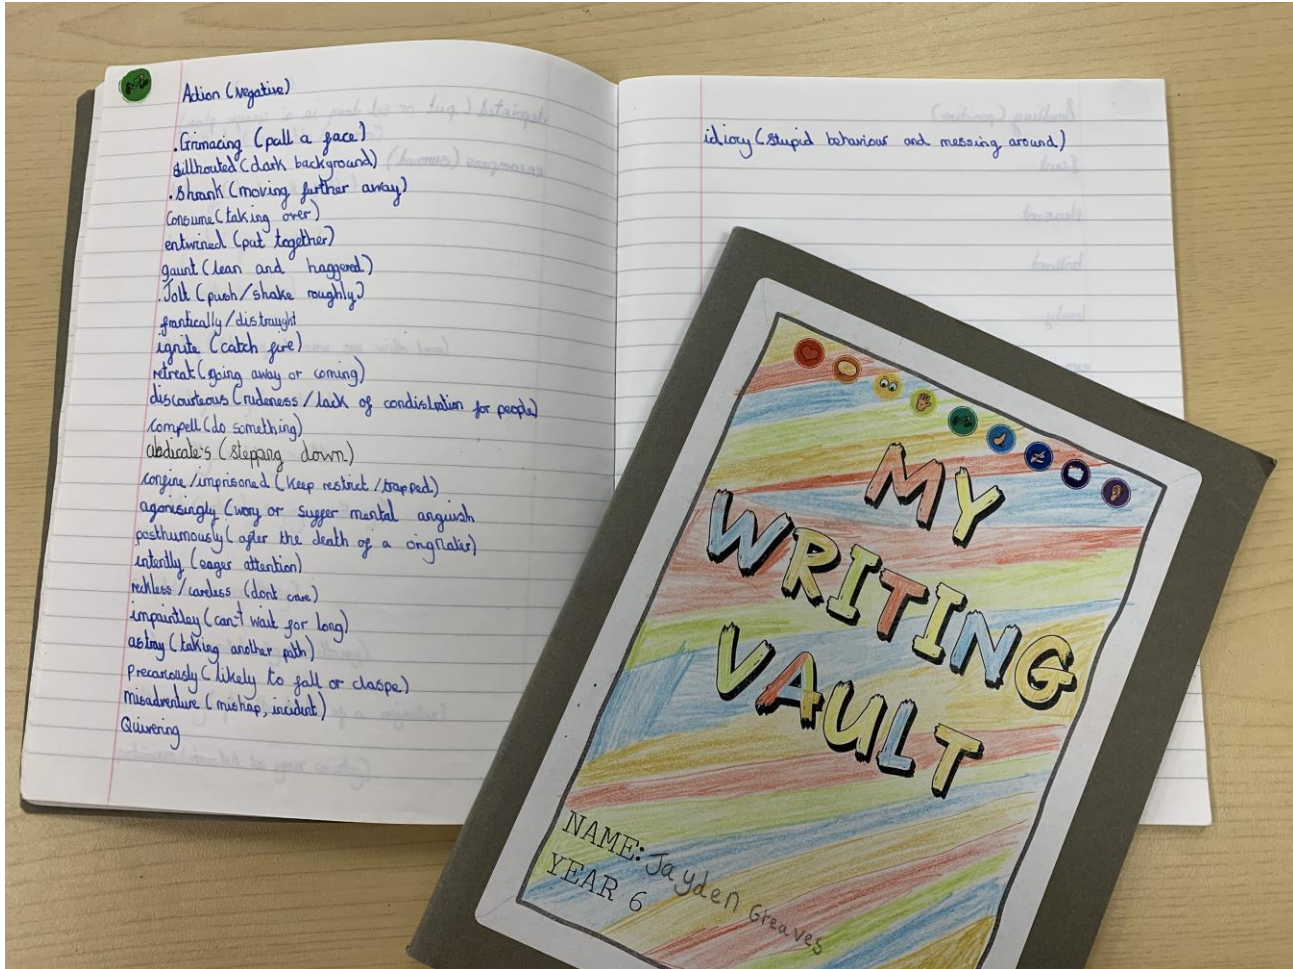 Action (Negative)
.Grimacing (pull a face)
Sillhouted (dark background)
.Shrank (moving further away)
Consume (taking over)
entwined (put together)
gaunt (lean and haggered)
.Jolt (push/shake roughly)
frantically/distraught
ignite (catch fire)
retreat (going away or coming)
discourteous (rudeness/lack of condistration for people)
compell (do something)
abdicate's (stepping down)
confine/imprisoned (keep restrict/trapped)
agonisingly (wory or suffer mental anguish
posthumously (after the death of a
intently (eager attention)
reckless/careless (dont care)
impaintley (can't wait for long)
astray (taking another path)
Precariously (likely to fall or claspe)
misadventure (mishap, incident)
Quivering
idiocy (stupid behaviour and messing around)
MY
WRITING
VAULT
NAME: Jayden Greaves
YEAR 6